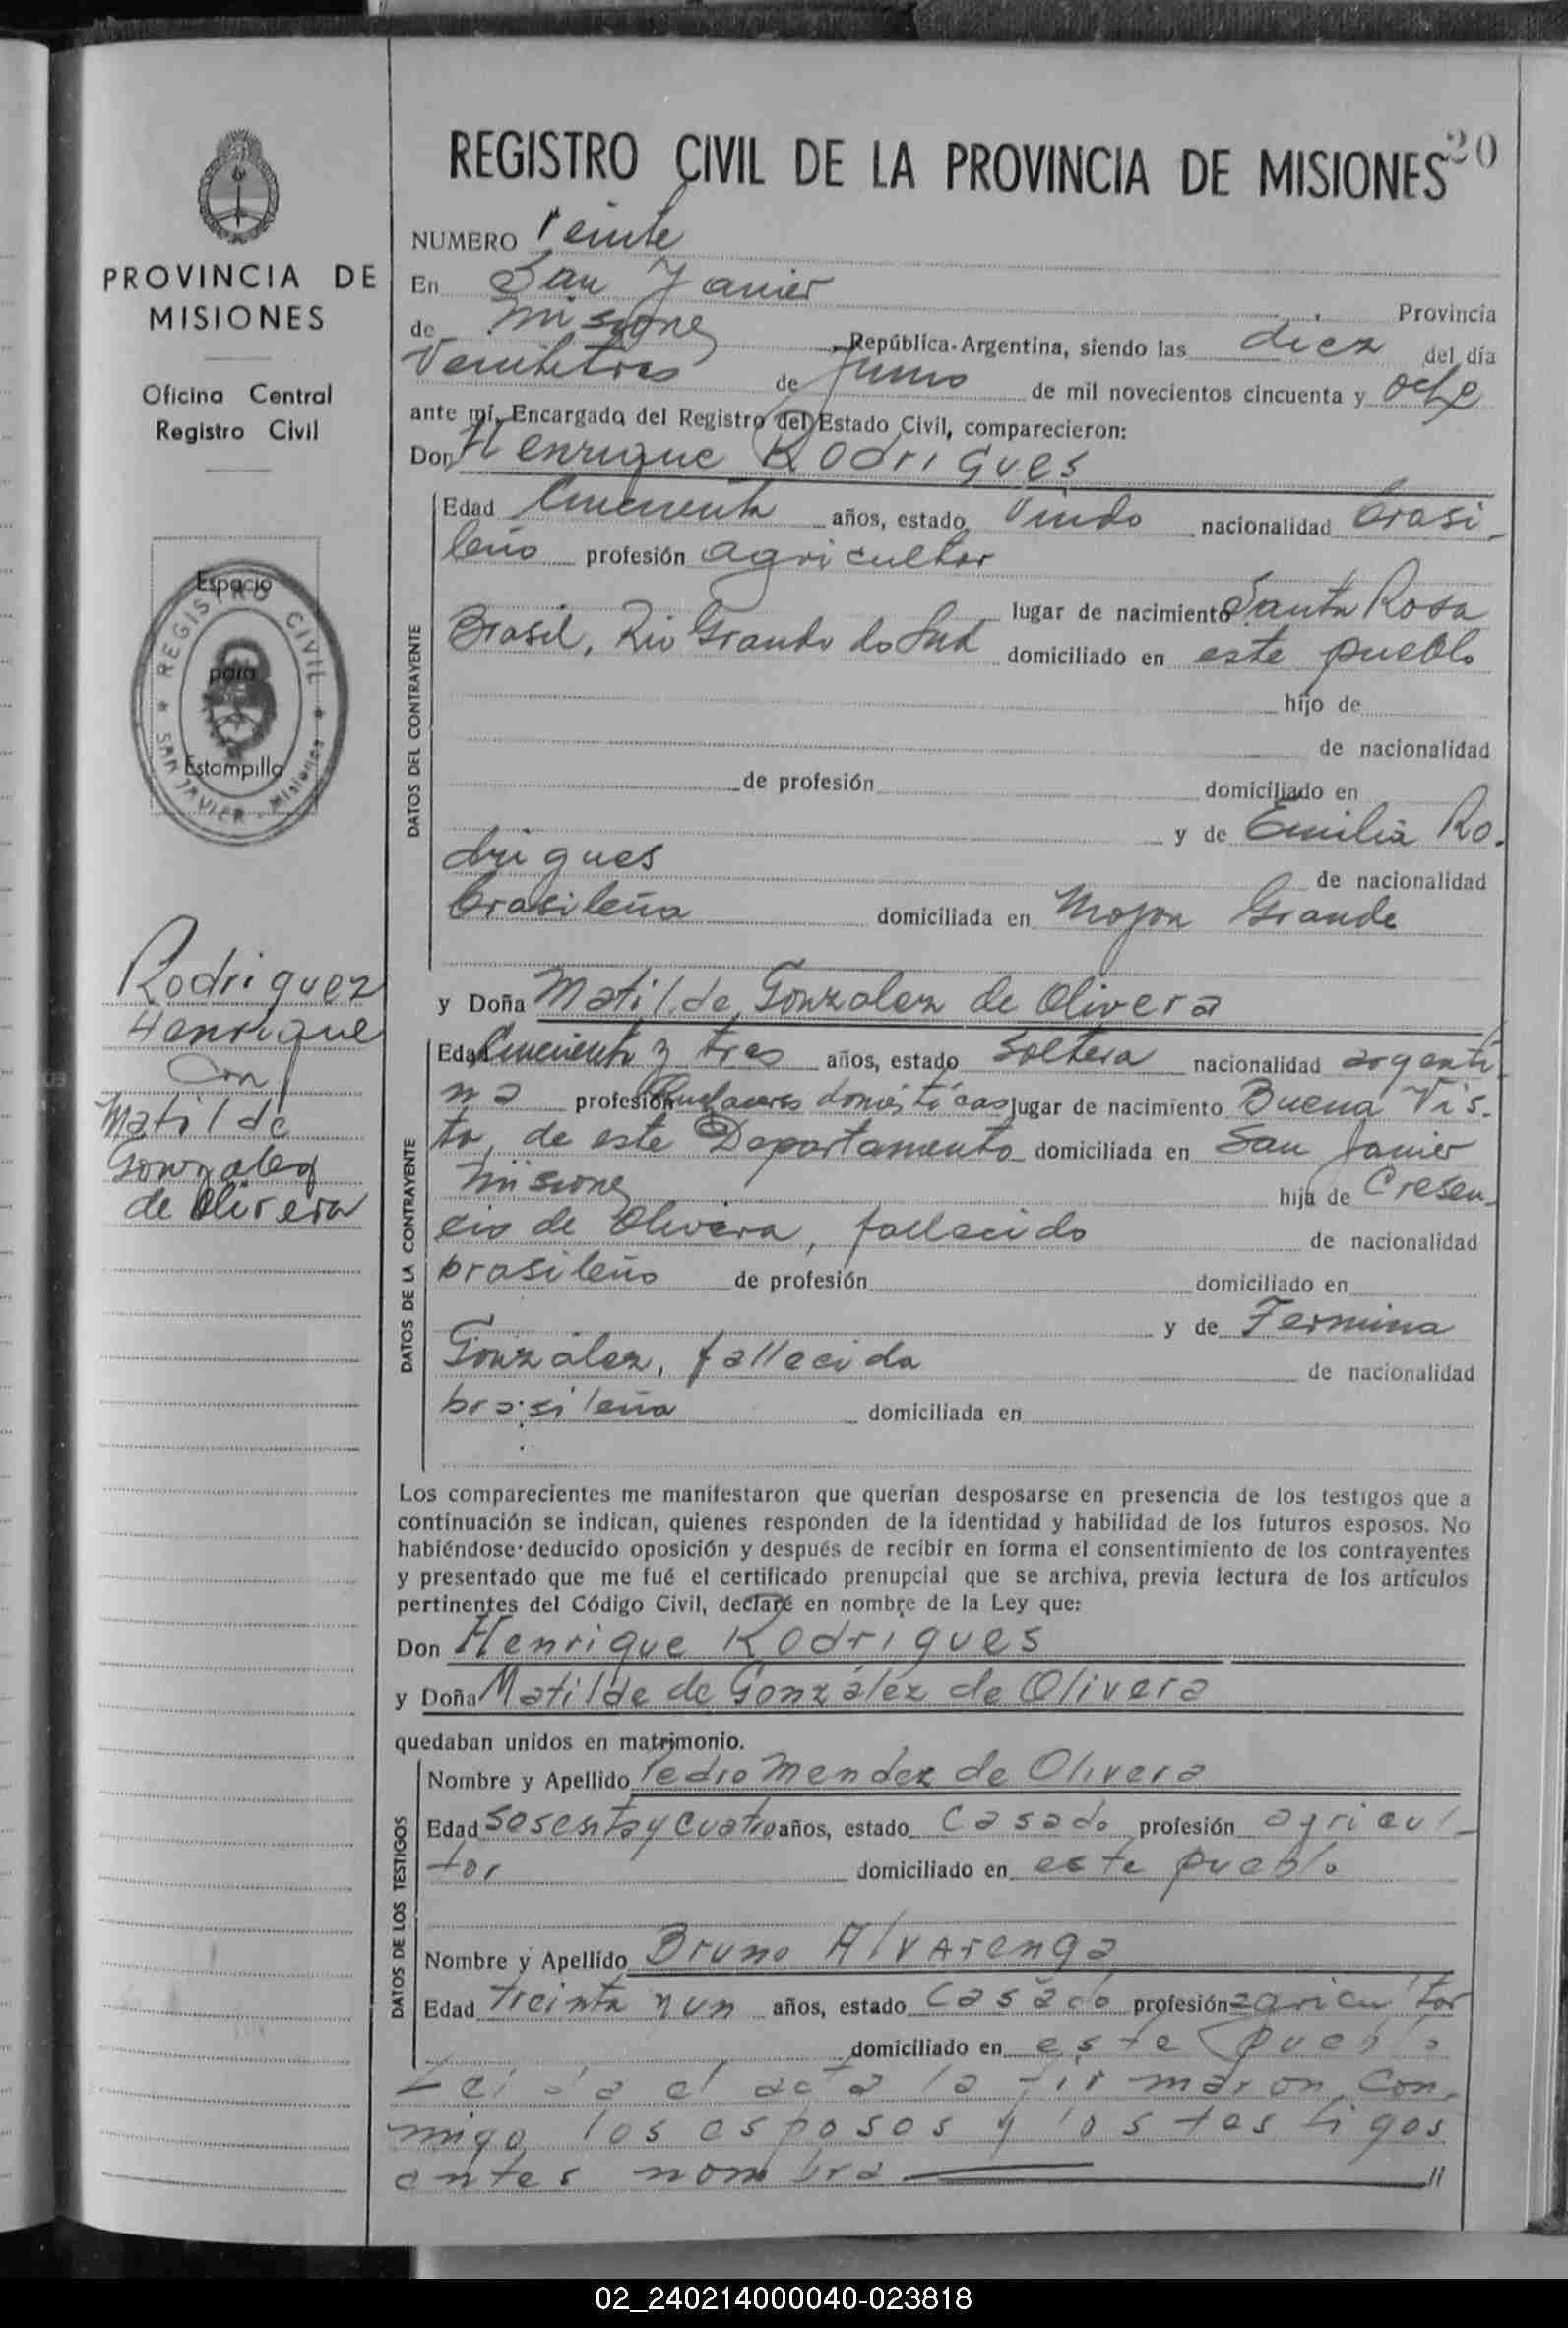 REGISTRO CIVIL DE LA PROVINCIA DE MISIONES 20
PROVINCIA DE
MISIONES
Oficina Central
Registro Civil
Espacio
para
Estampilla
REGISTRO CIVIL
SAN JAVIER - Misiones
Rodriguez
Henrique
Con
Matilde
Gonzalez
de Olivera
NUMERO Veinte
En San Javier
Provincia
de Misiones República Argentina, siendo las diez del día
Veintitres de Junio de mil novecientos cincuenta y ocho
ante mí, Encargado del Registro del Estado Civil, comparecieron:
Don Henrique Rodrigues
DATOS DEL CONTRAYENTE
Edad Cincuenta años, estado Viudo nacionalidad brasi
leño profesión agricultor
lugar de nacimiento Santa Rosa
Brasil, Rio Grande do Sud domiciliado en este pueblo
hijo de
de nacionalidad
de profesión domiciliado en
y de Emilia Ro.
drigues
de nacionalidad
brasileña domiciliada en Mojon Grande
y Doña Matilde Gonzalez de Olivera
DATOS DE LA CONTRAYENTE
Edad Cincuenta y tres años, estado Soltera nacionalidad argenti
na profesión Quehaceres domésticos lugar de nacimiento Buena Vis-
ta, de este Departamento domiciliada en San Javier
Misiones hija de Cresen-
cio de Olivera, fallecido de nacionalidad
brasileño de profesión domiciliado en
y de Fermina
González, fallecida de nacionalidad
brasileña domiciliada en
Los comparecientes me manifestaron que querían desposarse en presencia de los testigos que a
continuación se indican, quienes responden de la identidad y habilidad de los futuros esposos. No
habiéndose deducido oposición y después de recibir en forma el consentimiento de los contrayentes
y presentado que me fué el certificado prenupcial que se archiva, previa lectura de los artículos
pertinentes del Código Civil, declaré en nombre de la Ley que:
Don Henrique Rodrigues
y Doña Matilde de González de Olivera
quedaban unidos en matrimonio.
DATOS DE LOS TESTIGOS
Nombre y Apellido Pedro Mendez de Olivera
Edad Sesenta y cuatro años, estado Casado profesión agricul-
tor domiciliado en este pueblo
Nombre y Apellido Bruno Alvarenga
Edad treinta y un años, estado Casado profesión agricultor
domiciliado en este pueblo
Leida el acta la firmaron con-
migo los esposos y los testigos
antes nombra //
02_240214000040-023818